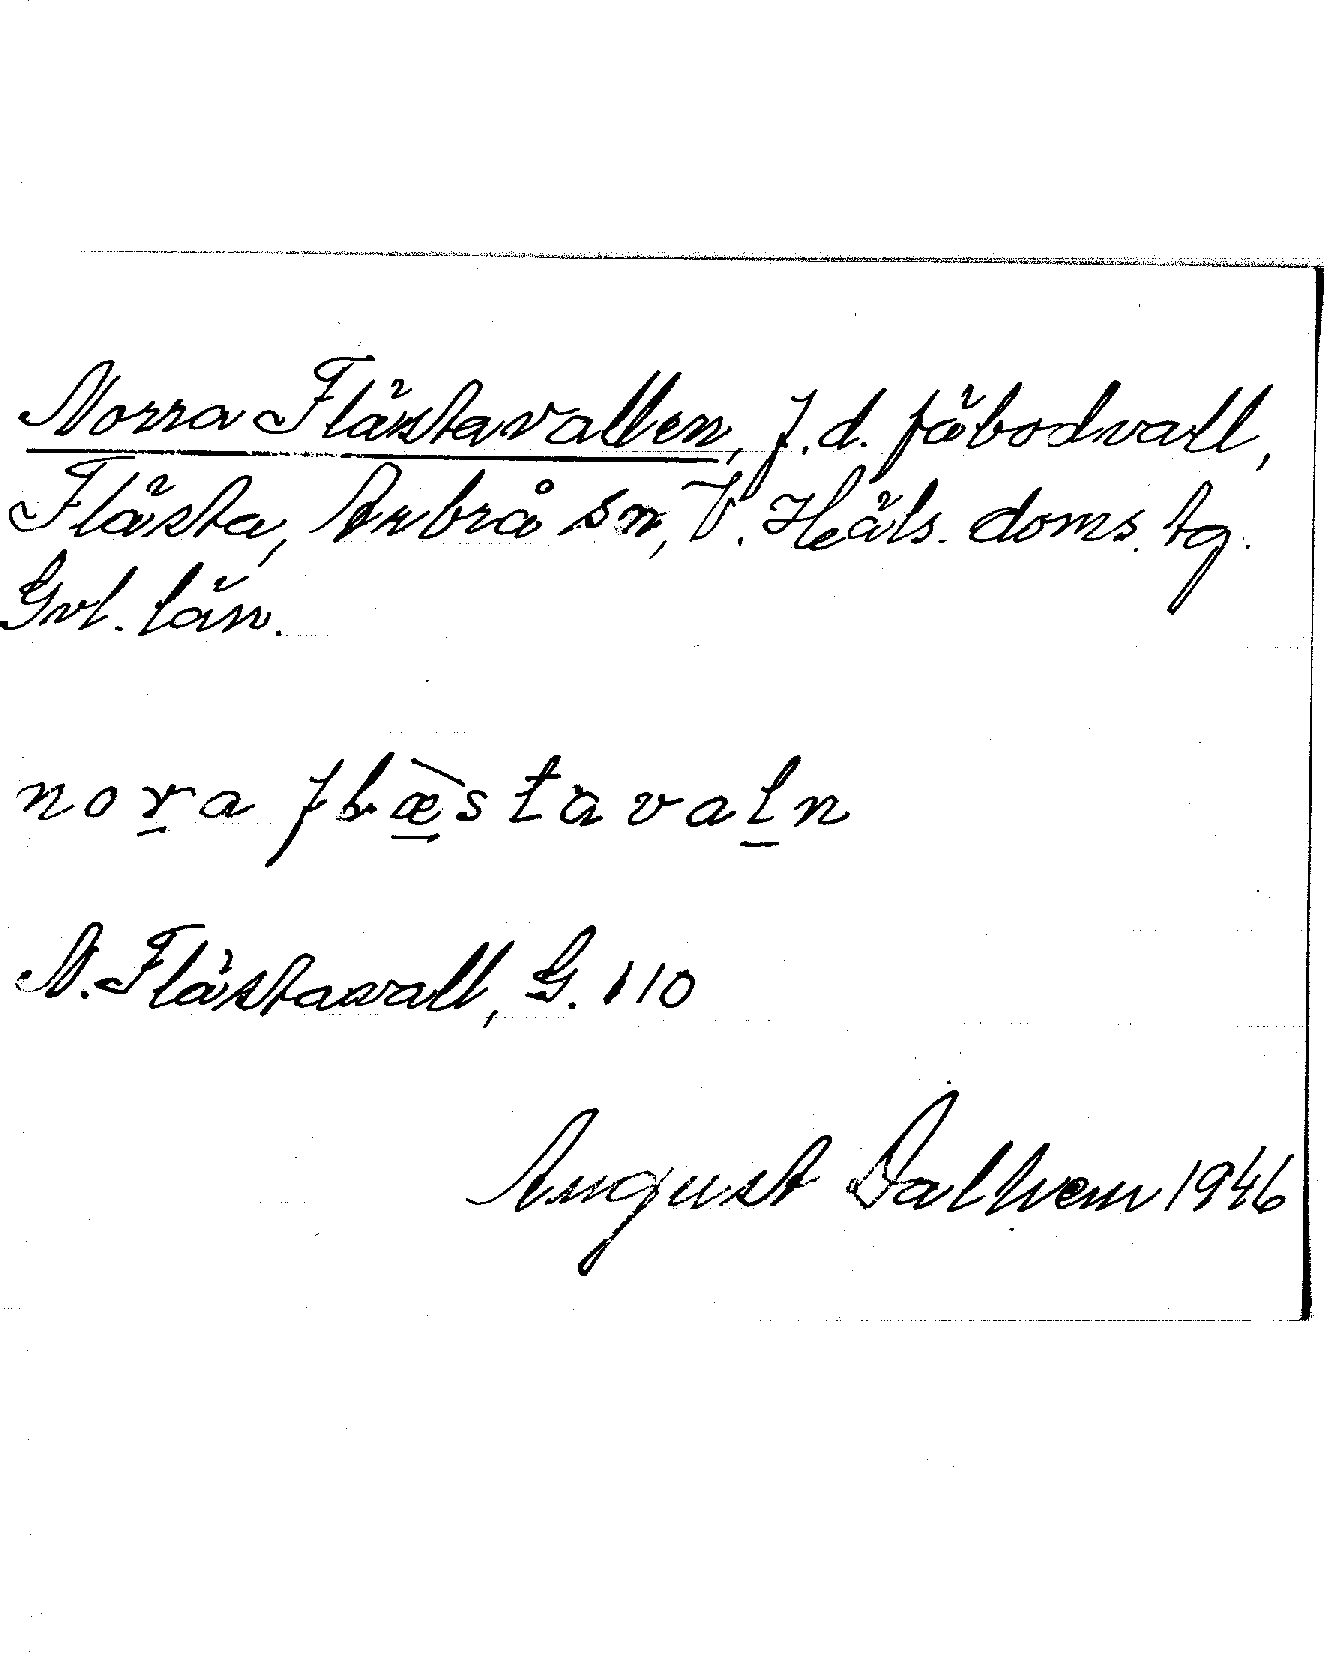 Norra Flästavallen, f.d. fäbodvall,
Flästa, Arbrå sn, V. Häls. doms. tg.
Gvl. län.
nora flæ̀stavaln
N. Flästavall, G. 110
August Dalhem 1946